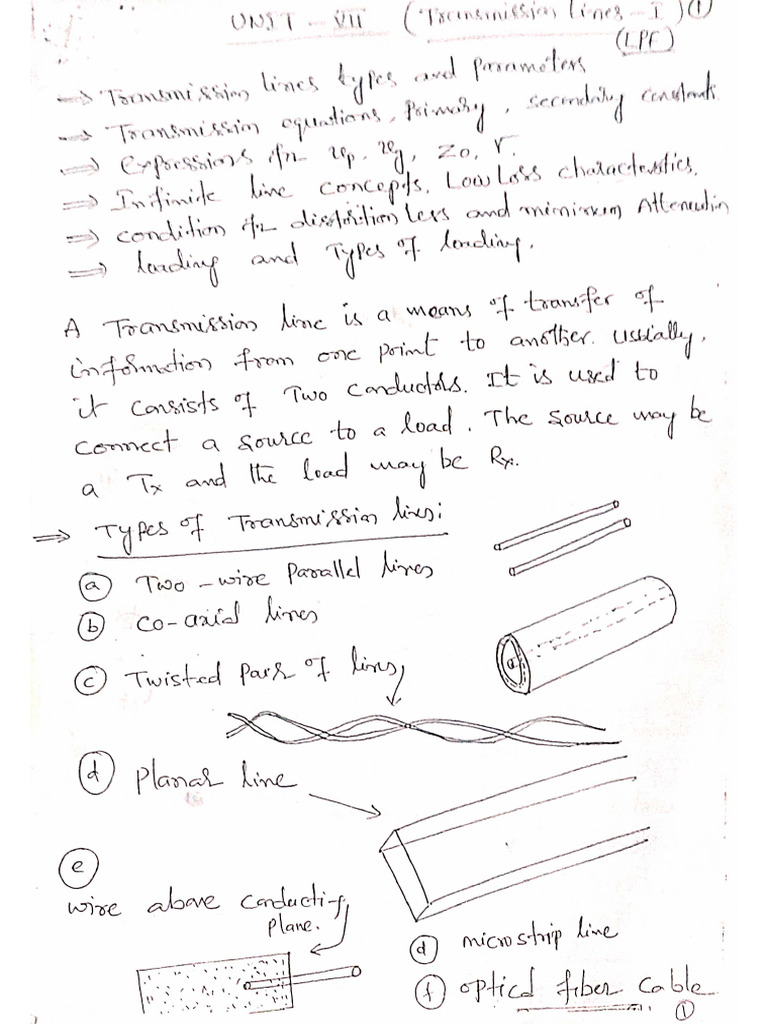 UNIT - VII (Transmission Lines - I) ①
(LPF)
⇒ Transmission lines types and Parameters
⇒ Transmission equations, Primary, secondary constants
⇒ Expressions for Vp, Vg, Zo, r.
⇒ Infinite line concepts, LowLoss characteristics.
⇒ condition for distortionless and minimum Attenuation
⇒ loading and Types of loading.
A Transmission line is a means of transfer of
information from one point to another. usually,
it consists of Two conductors. It is used to
connect a source to a load. The source may be
a Tx and the load may be Rx.
⇒ Types of Transmission lines:
ⓐ Two-wire Parallel lines
ⓑ co-axial lines
ⓒ Twisted Pair of lines
ⓓ Planar line
ⓔ
wire above conducting
plane.
ⓓ microstrip line
ⓕ optical fiber cable
①